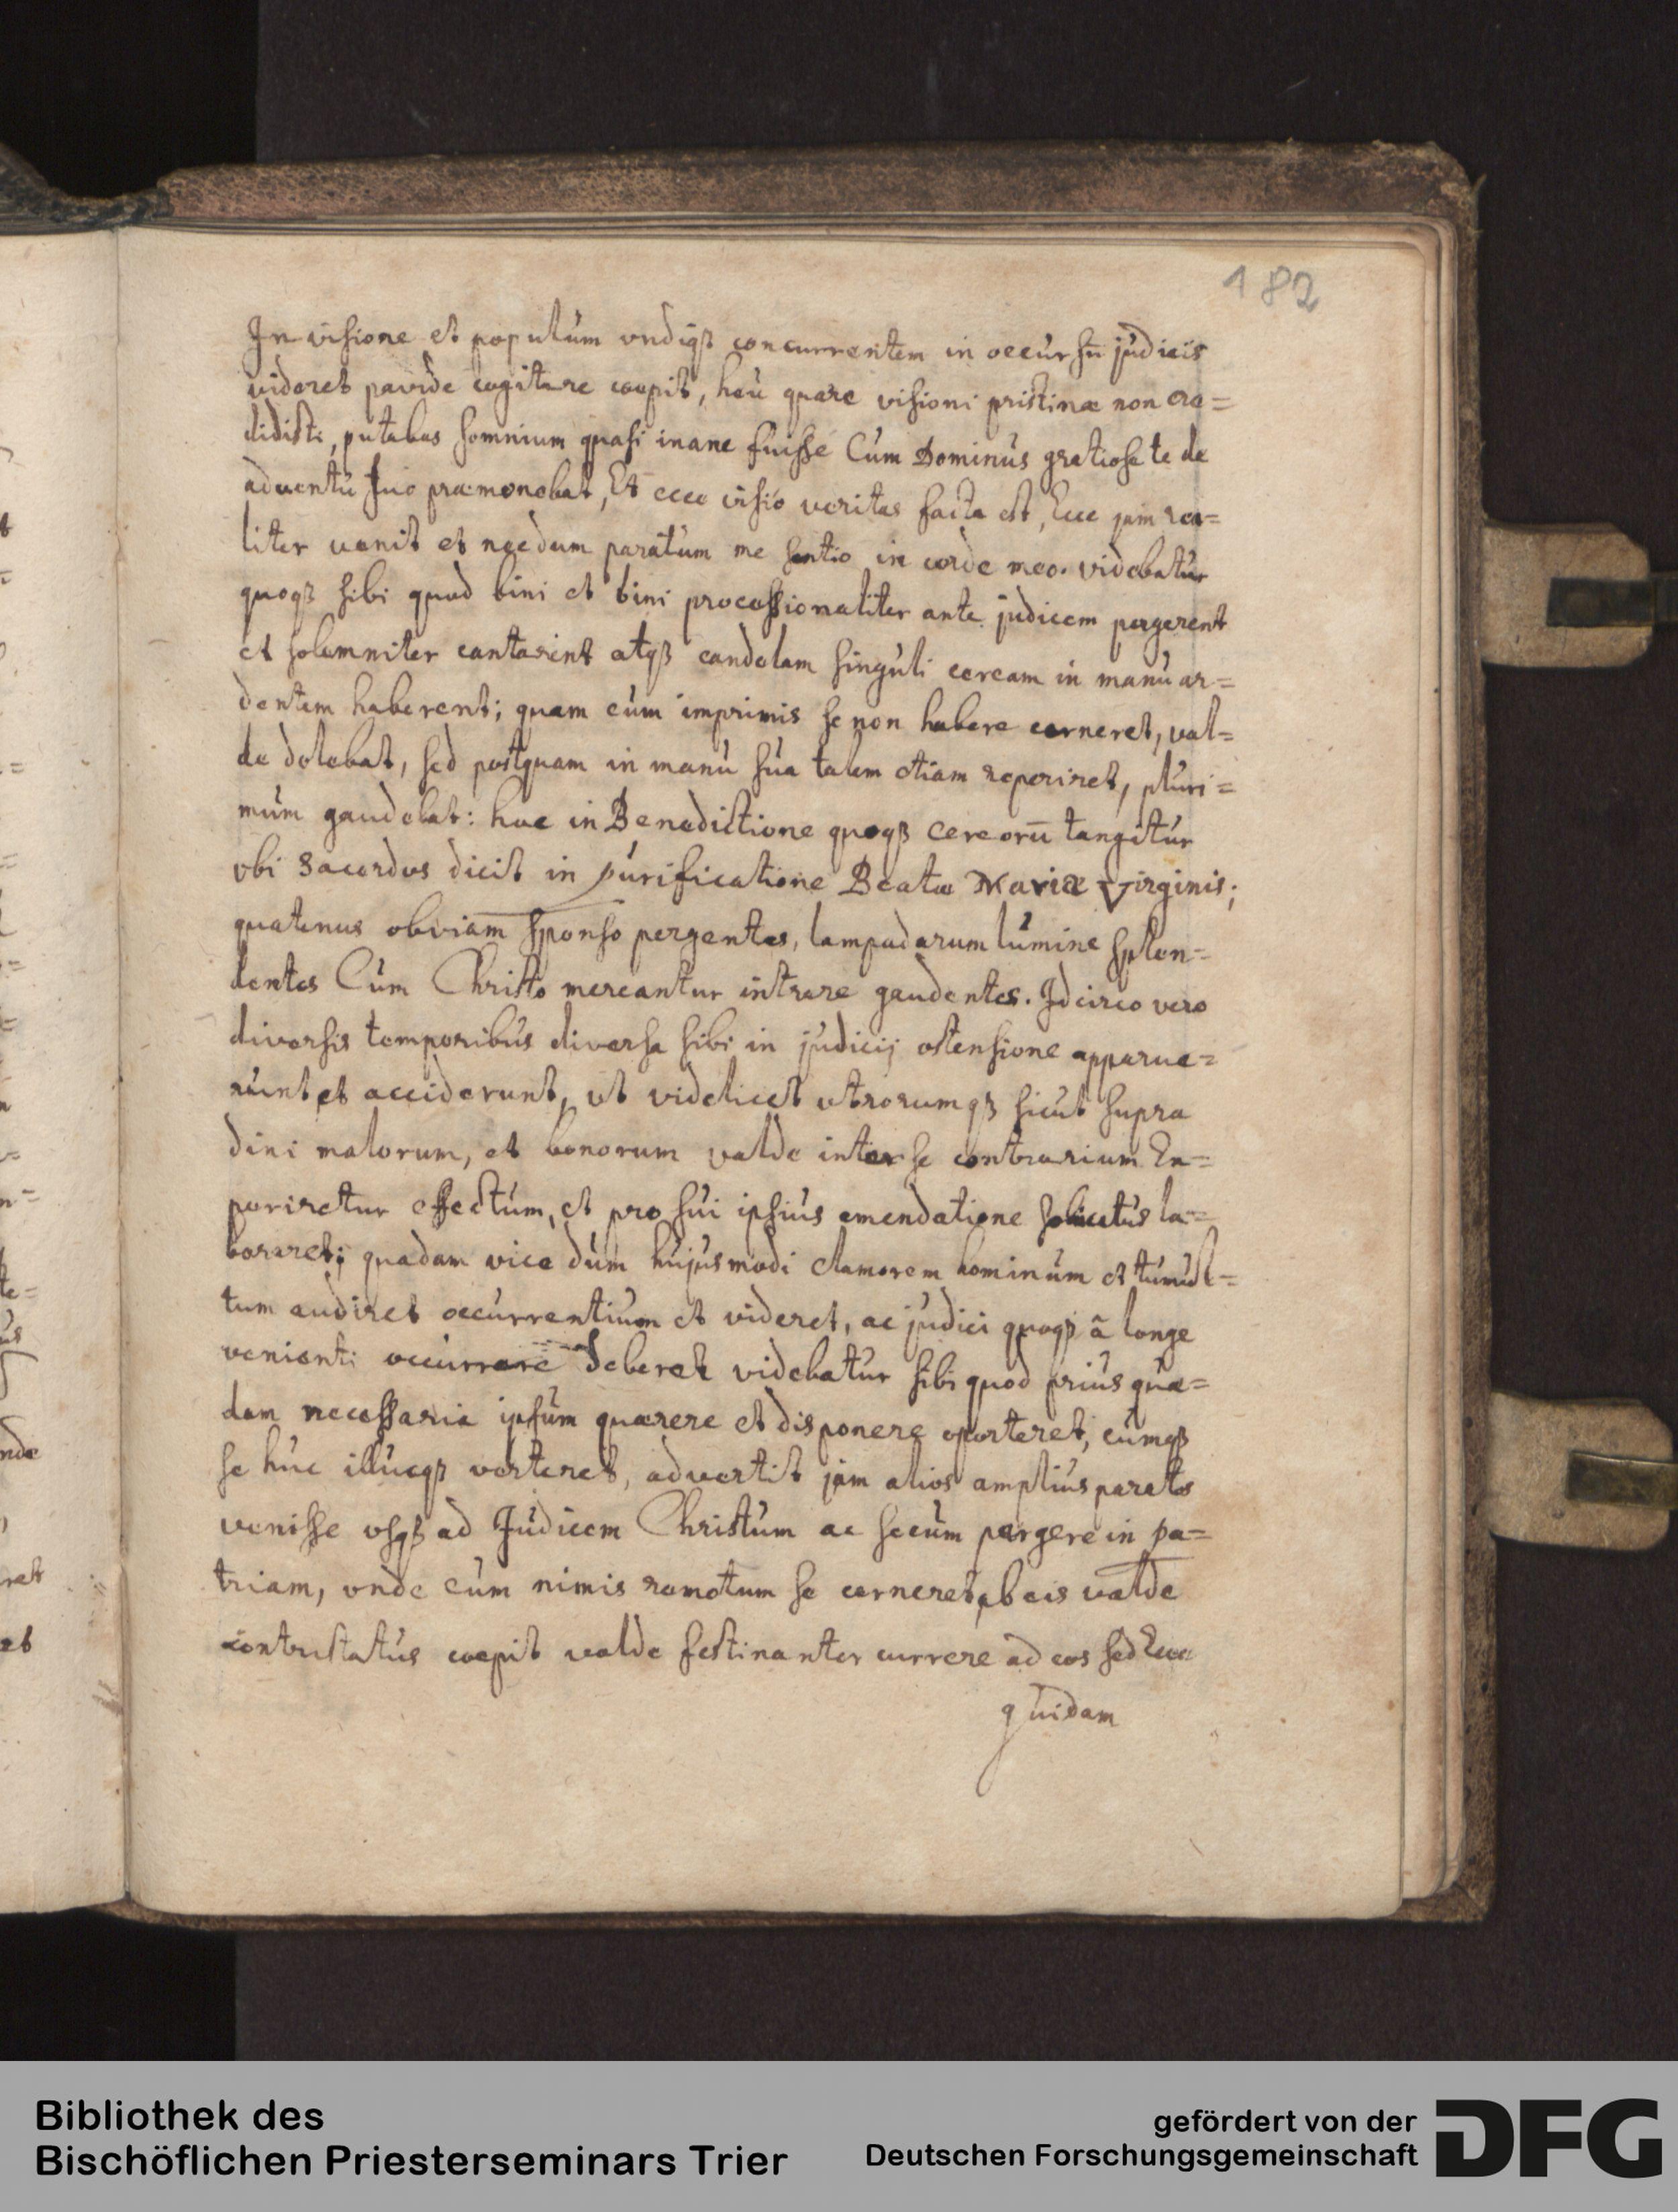 182
In visione et populum vndiqꝫ concurrentem in occursu judicis
videret pavide cogitare coepit, heu quare visioni pristinæ non cre=
didisti, putabas somnium quasi inane fuisse Cum Dominus gratiose te de
adventu suo præmonebat, Et ecce visio veritas facta est, Ecce jam rea=
liter venit et necdum paratum me sentio in corde meo. videbatur
quoqꝫ sibi quod bini et bini processionaliter ante judicem pergerent
et solemniter cantarent atqꝫ candelam singuli ceream in manu ar=
dentem haberent; quam cum imprimis se non habere cerneret, val=
de dolebat, sed postquam in manu sua talem etiam reperiret, pluri=
mum gaudebat: hoc in Benedictione quoqꝫ cereorū tangitur
vbi Sacerdos dicit in purificatione Beatæ Mariæ Virginis;
quatenus obviam sponso pergentes, lampadarum lumine splen=
dentes Cum Christo mereantur intrare gaudentes. Idcirco vero
diversis temporibus diversa sibi in judicij ostensione apparue=
runt et acciderunt, vt videlicet vtrorumqꝫ sicut supra
dixi malorum, et bonorum valde inter se contrarium Ex=
periretur effectum, et pro sui ipsius emendatione solicitus la=
boraret; quadam vice dum hujusmodi clamorem hominum et tumul=
tum audiret occurrentium et videret, ac judici quoqꝫ ã longe
venienti occurrere deberet videbatur sibi quod prius quæ=
dam necessaria ipsum quærere et disponere oporteret, cumqꝫ
se huc illucqꝫ verteret, advertit jam alios amplius paratos
venisse vsqꝫ ad Judicem Christum ac secum pergere in pa=
triam, vnde cum nimis remotum se cerneret ab eis valde
contristatus coepit valde festinanter currere ad eos sed Ecce
quidam
Bibliothek des
Bischöflichen Priesterseminars Trier
gefördert von der
Deutschen Forschungsgemeinschaft
DFG